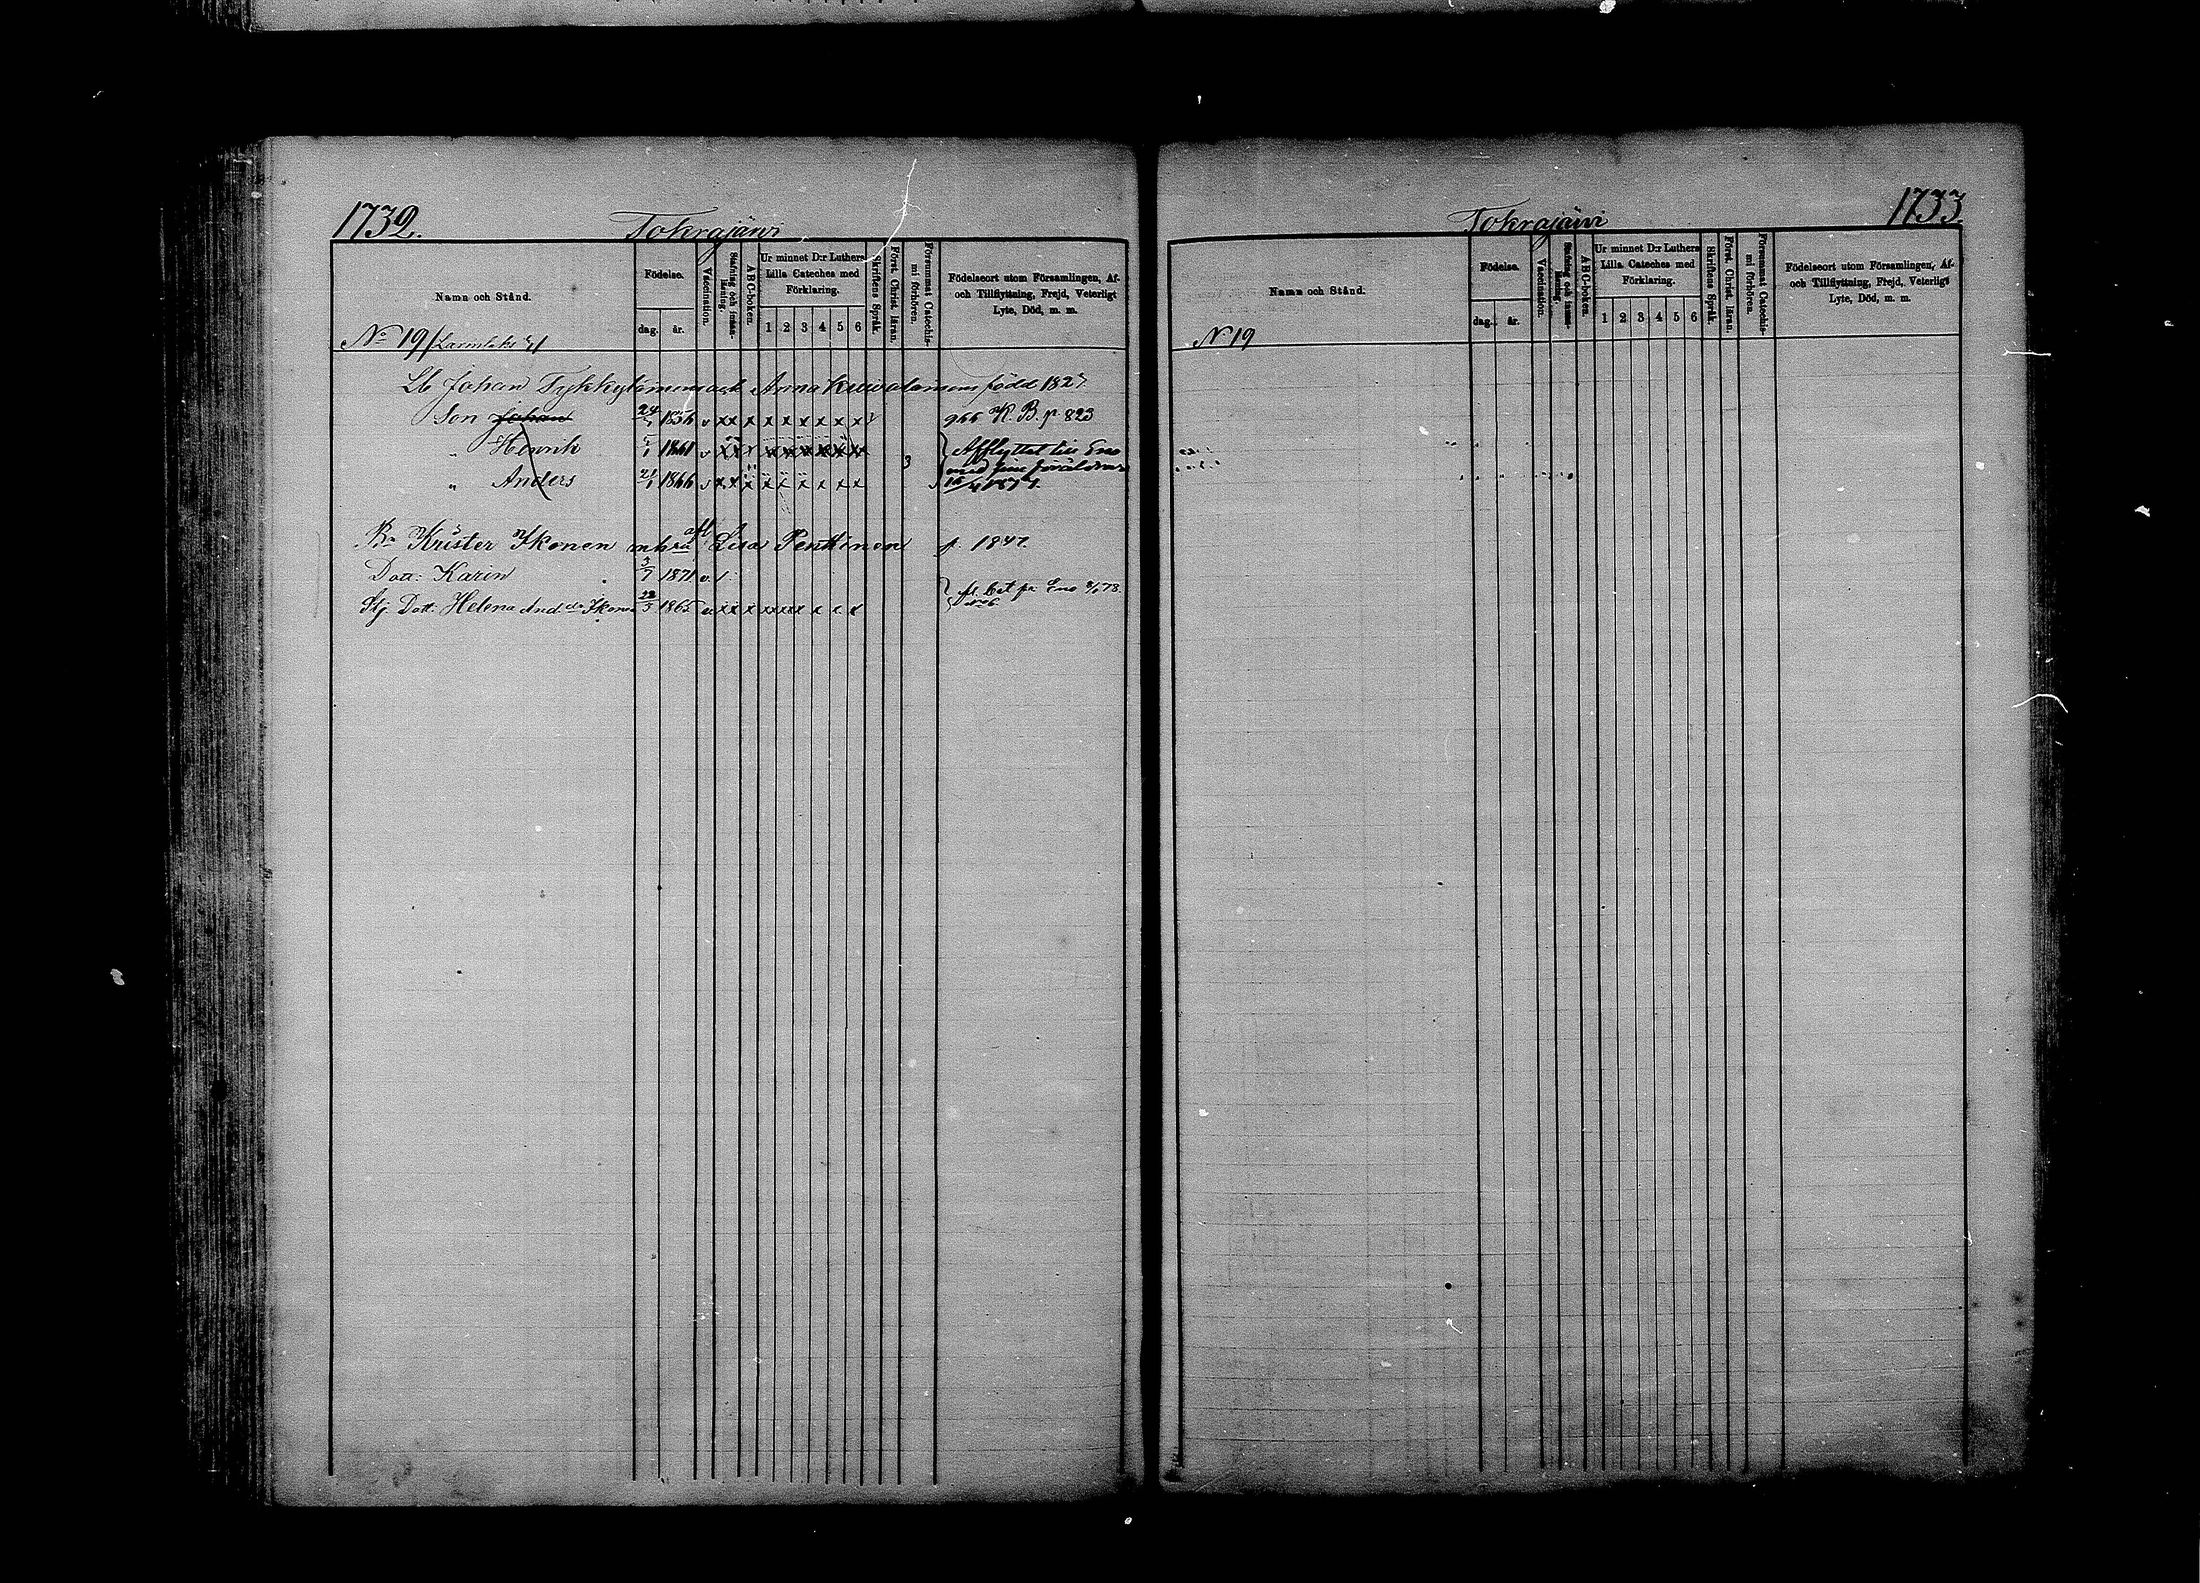 1732.
Tokrajärvi
Namn och Stånd.
Födelse.
dag. år.
Vaccination.
Stafning och innanläsning.
ABC-boken.
Ur minnet D:r Luthers Lilla Cateches med Förklaring.
1 2 3 4 5 6
Skriftens Språk.
Först. Christ. läran.
Försummat Catechismi förhören.
Födelseort utom Församlingen, Af- och Tillflyttning, Frejd, Veterligt Lyte, Död, m. m.
No 19
Lb Johan Tykkyläinen och Anna född 182
Son Johan 24 1856 v xx x x x x x x x 966 K. B. p 823
" Henrik 1861 v xx x x x x x x x Afflyttat till Eno
3 med sine föräldrar
" Anders 21/1 1866 v x x x x x x x x x
Br Krister Ikonen m hu Lisa Penttinen f. 1847.
Dott: Karin 3/7 1871 v /
fl. bet på Eno 78.
Stj Dott: Helena And dr Ikonen 22/3 1865 v x x x x x x x x x
1733.
Tokrajärvi
Namn och Stånd.
Födelse.
dag. år.
Vaccination.
Stafning och innanläsning.
ABC-boken.
Ur minnet D:r Luthers Lilla Cateches med Förklaring.
1 2 3 4 5 6
Skriftens Språk.
Först. Christ. läran.
Försummat Catechismi förhören.
Födelseort utom Församlingen, Af- och Tillflyttning, Frejd, Veterligt Lyte, Död, m. m.
N 19